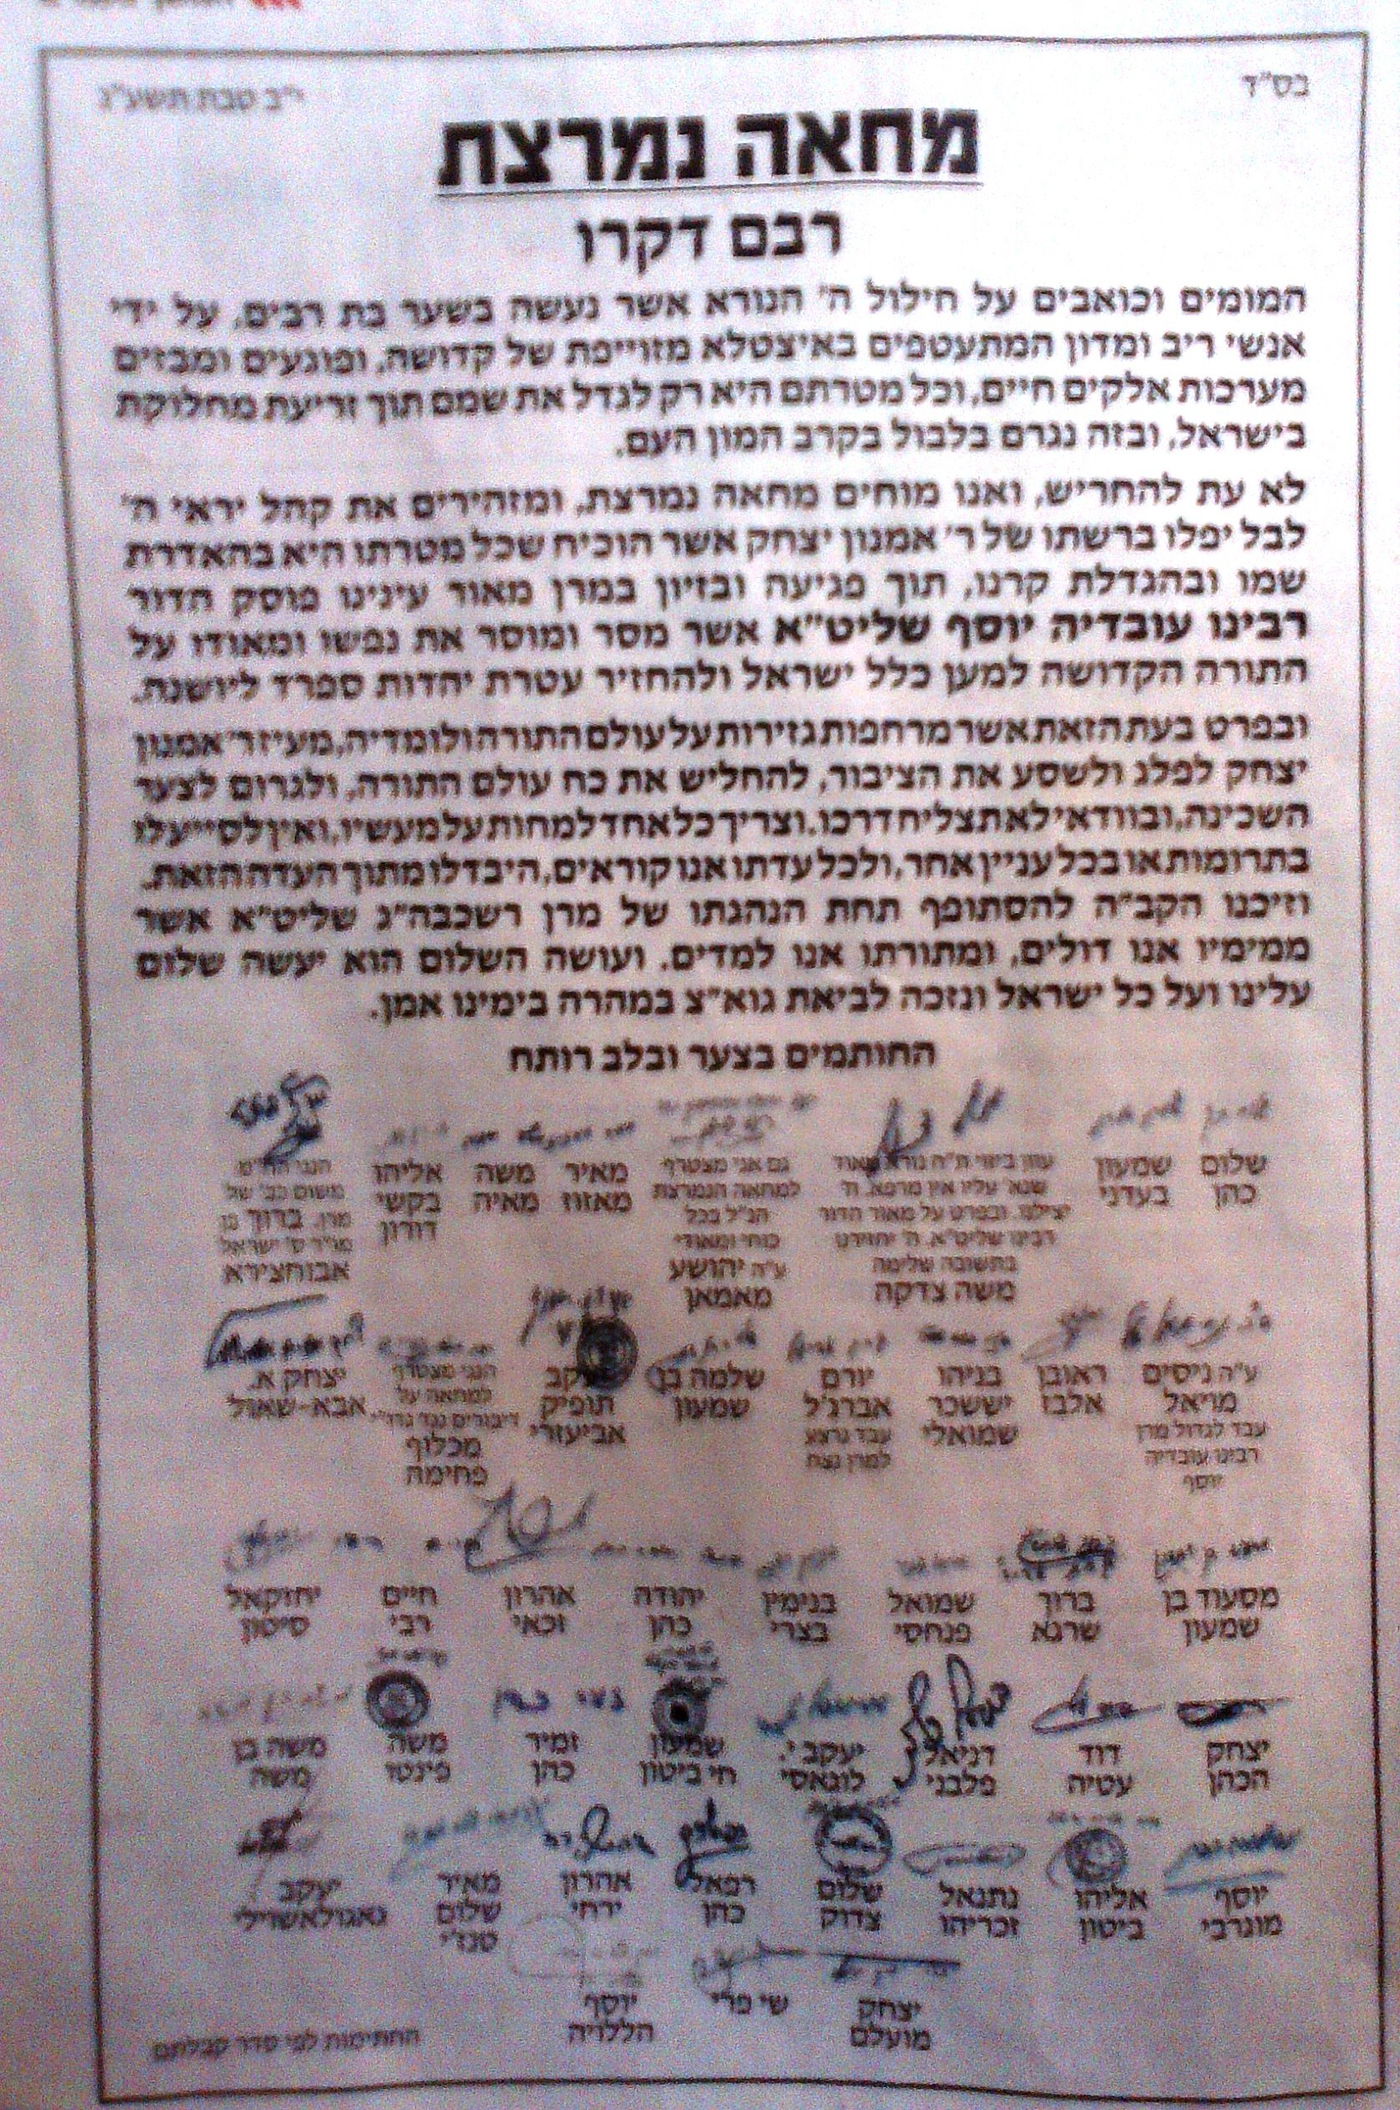 בס"ד
י"ב טבת תשע"ג
מחאה נמרצת
רבם דקרו
המומים וכואבים על חילול ה' הנורא אשר נעשה בשער בת רבים, על ידי
אנשי ריב ומדון המתעטפים באיצטלא מזוייפת של קדושה, ופוגעים ומבזים
מערכות אלקים חיים, וכל מטרתם היא רק לגדל את שמם תוך זריעת מחלוקת
בישראל, ובזה נגרם בלבול בקרב המון העם.
לא עת להחריש, ואנו מוחים מחאה נמרצת, ומזהירים את קהל יראי ה'
לבל יפלו ברשתו של ר' אמנון יצחק אשר הוכיח שכל מטרתו היא בהאדרת
שמו ובהגדלת קרנו, תוך פגיעה ובזיון במרן מאור עינינו פוסק הדור
רבינו עובדיה יוסף שליט"א אשר מסר ומוסר את נפשו ומאודו על
התורה הקדושה למען כלל ישראל ולהחזיר עטרת יהדות ספרד ליושנה.
ובפרט בעת הזאת אשר מרחפות גזירות על עולם התורה ולומדיה, מעיז ר' אמנון
יצחק לפלג ולשסע את הציבור, להחליש את כח עולם התורה, ולגרום לצער
השכינה, ובוודאי לא תצליח דרכו. וצריך כל אחד למחות על מעשיו, ואין לסייע לו
בתרומות או בכל עניין אחר, ולכל עדתו אנו קוראים, היבדלו מתוך העדה הזאת.
וזיכנו הקב"ה להסתופף תחת הנהגתו של מרן רשכבה"ג שליט"א אשר
ממימיו אנו דולים, ומתורתו אנו למדים. ועושה השלום הוא יעשה שלום
עלינו ועל כל ישראל ונזכה לביאת גוא"צ במהרה בימינו אמן.
החותמים בצער ובלב רותח
שלום
כהן
שמעון
בעדני
עוון ביזוי ת"ח נורא מאוד
שנא' עליו אין מרפא. ה'
יצילנו. ובפרט על מאור הדור
רבינו שליט"א. ה' יחזירנו
בתשובה שלימה
משה צדקה
גם אני מצטרף
למחאה הנמרצת
הנ"ל בכל
כוחי ומאודי
ע"ה יהושע
מאמאן
מאיר
מאזוז
משה
מאיה
אליהו
בקשי
דורון
משום כב' של
מרן. ברוך בן
מו"ר ס' ישראל
אבוחצירא
ע"ה ניסים
מויאל
עבד לגדול מרן
רבינו עובדיה
יוסף
ראובן
אלבז
בניהו
יששכר
שמואלי
יורם
אברג'ל
עבד נרצע
למרן נצח
שלמה בן
שמעון
יעקב
תופיק
אביעזרי
הנני מצטרף
למחאה על
מכלוף
פחימה
יצחק א.
אבא-שאול
מסעוד בן
שמעון
ברוך
שרגא
שמואל
פנחסי
בנימין
בצרי
יהודה
כהן
אהרון
זכאי
חיים
רבי
יחזקאל
סיטון
יצחק
הכהן
דוד
עטיה
דניאל
פלבני
יעקב י.
לוגאסי
שמעון
חי ביטון
זמיר
כהן
משה
פינטו
משה בן
משה
יוסף
מוגרבי
אליהו
ביטון
נתנאל
זכריהו
שלום
צדוק
רפאל
כהן
אהרון
ירחי
מאיר
שלום
סנג'י
יעקב
גאגולאשוילי
יצחק
מועלם
שי פרי
יוסף
הללויה
החתימות לפי סדר קבלתם